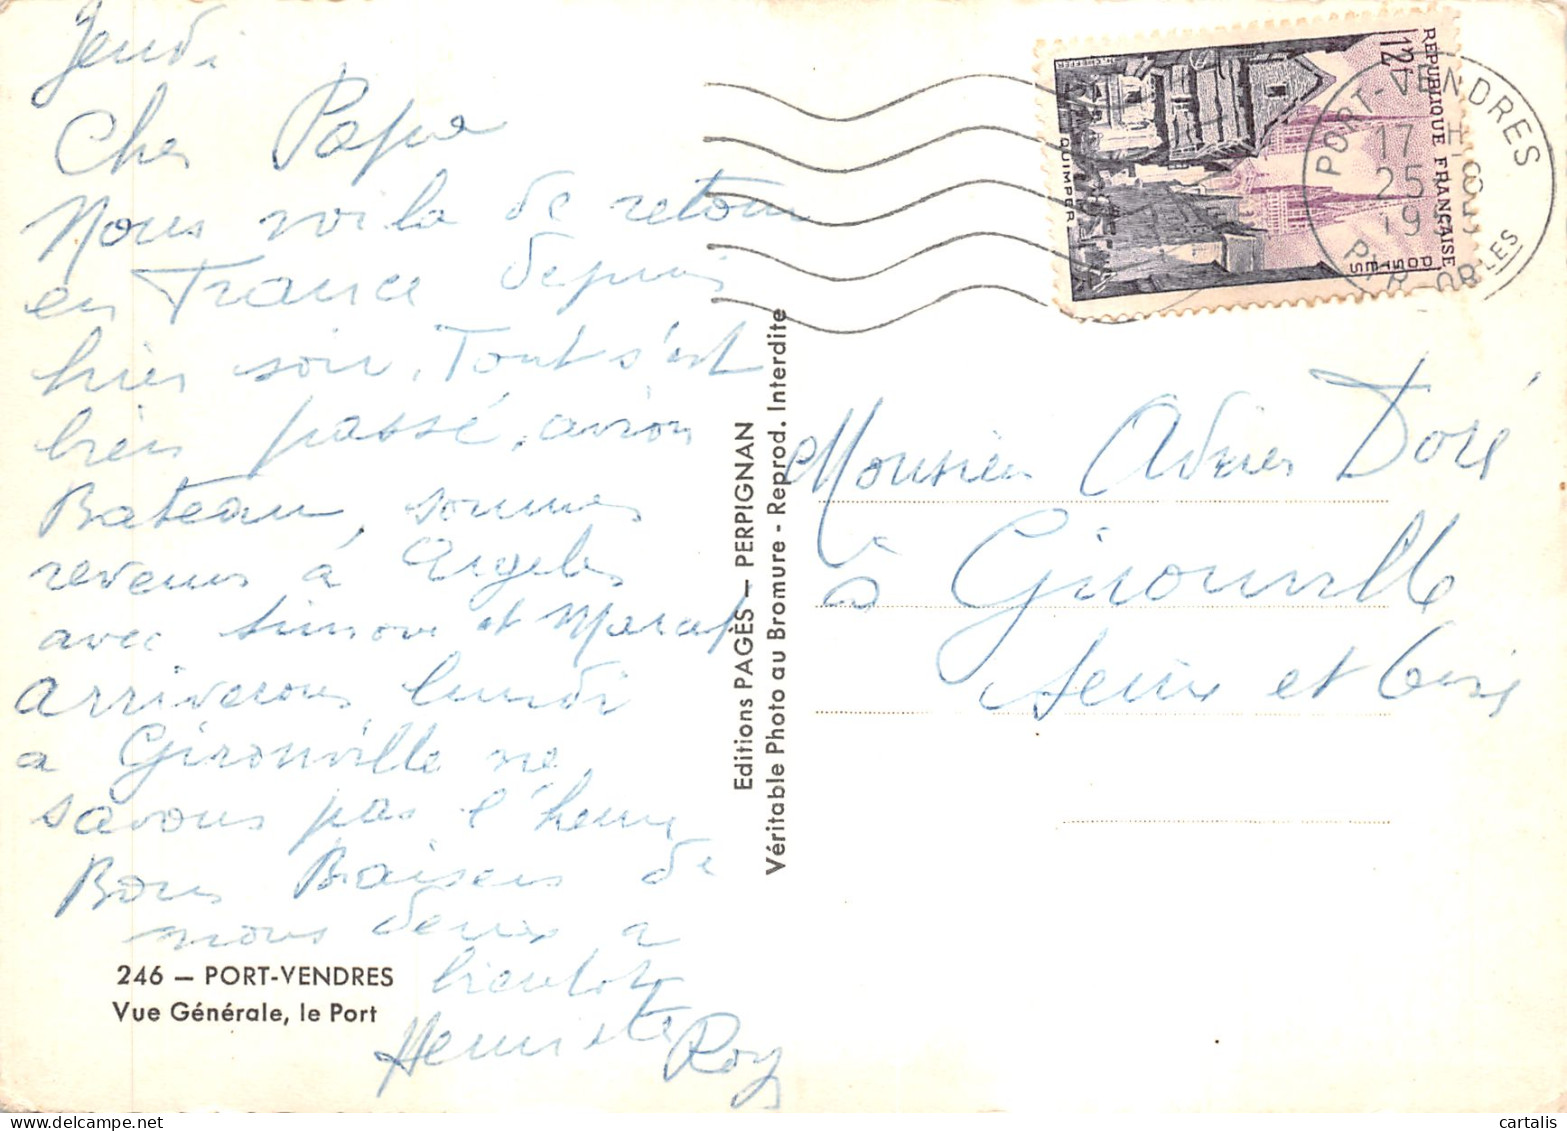 Jeudi
Cher Papa
Nous voila de retour
en France depuis
hier soir. Tout s'est
bien passé, avion
Bateau, sommes
revenus à Argeles
avec Simone et
arriverons lundi
a Gironville ne
savons pas l'heure
Bons Baisers de
nous deux a
bientot
Henriette Roy
246 — PORT-VENDRES
Vue Générale, le Port
Editions PAGÈS — PERPIGNAN
Véritable Photo au Bromure - Reprod. Interdite
REPUBLIQUE FRANÇAISE
POSTES
12F
QUIMPER
H. CHEFFER
PORT-VENDRES
17 H
25
19
Monsieur Doré
à Gironville
Seine et Oise
cartalis